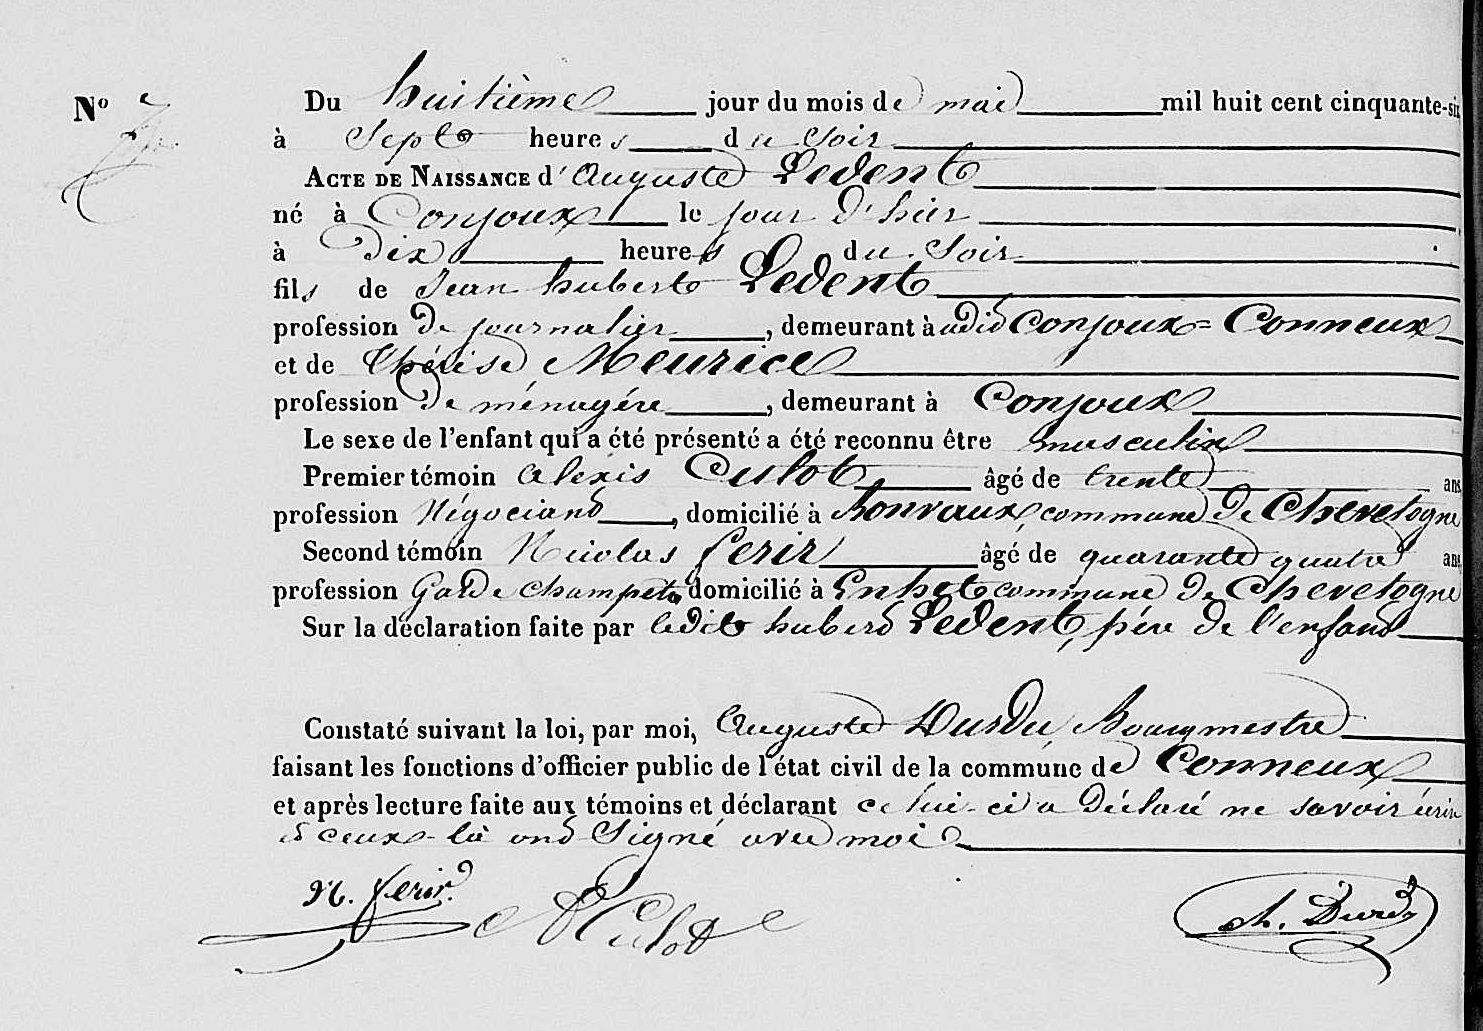 N° 7
Du huitième jour du mois de mai mil huit cent cinquante-six
à Sept heures du Soir
ACTE DE NAISSANCE d'Auguste Ledent
né à Conjoux le jour d'hier
à Dix heures du Soir
fils de Jean hubert Ledent
profession De journalier, demeurant à udit Conjoux = Conneux
et de Thérèse Meurice
profession De ménagère, demeurant à Conjoux
Le sexe de l'enfant qui a été présenté a été reconnu être masculin
Premier témoin Alexis Culot, âgé de trente ans
profession Négociant, domicilié à Ronvaux, commune De Chevetogne
Second témoin Nicolas ferir âgé de quarante quatre ans
profession Garde champetre domicilié à Enhet commune De Chevetogne
Sur la déclaration faite par ledit hubert Ledent, père De l'enfant
Constaté suivant la loi, par moi, Auguste Burdu, Bourgmestre
faisant les fonctions d'officier public de l'état civil de la commune de Conneux
et après lecture faite aux témoins et déclarant celui-ci a Déclaré ne savoir écrire
et ceux-là ont Signé avec moi
N. ferir. A Culot